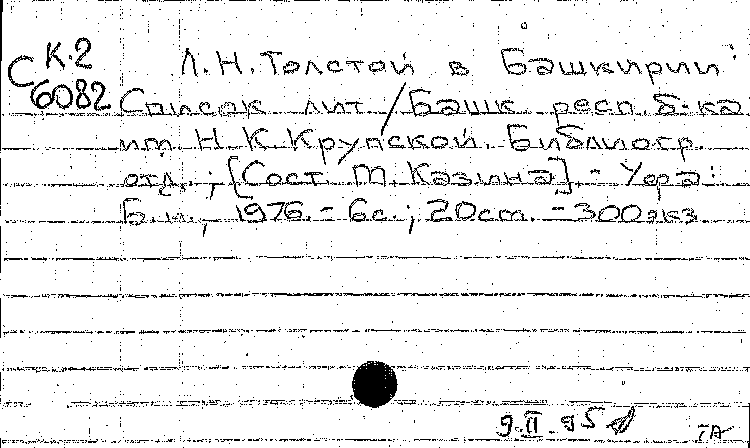 К.2
С
6082
Л.Н.Толстой в Башкирии:
Список лит / Башк респ. б-ка
им. Н.К.Крупской. Библиогр.
отд. ; [Сост. М. Казина]. - Уфа:
Б.и., 1976. - 6с.; 20см. - 300экз.
9.II.95
ТА